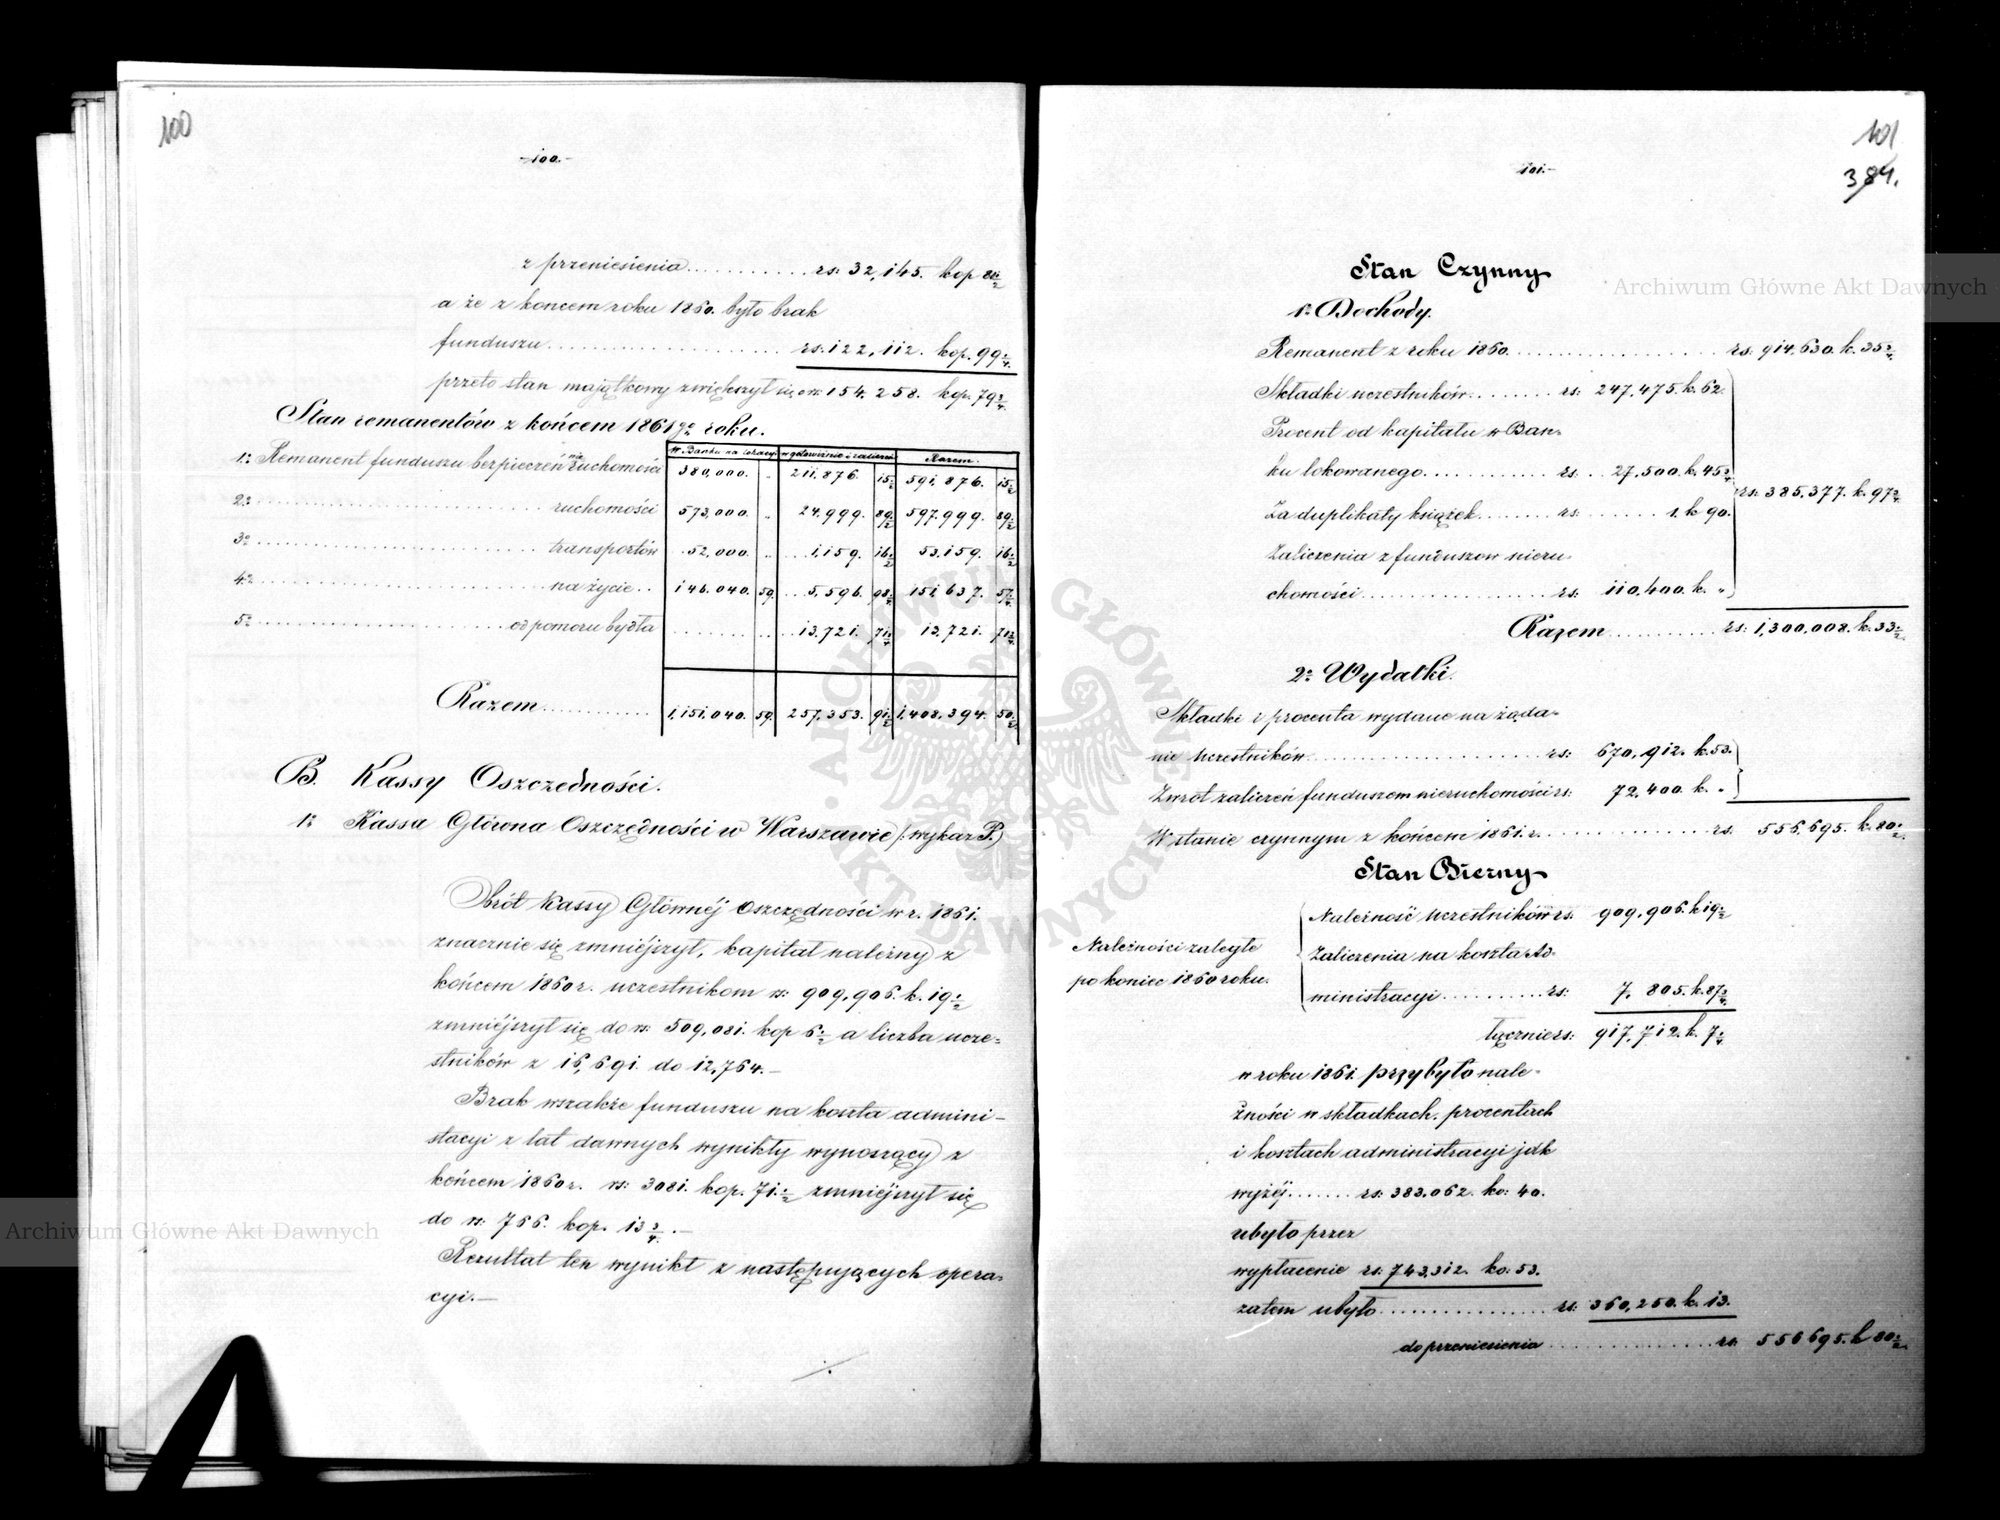 100
-100.-
z przeniesienia............ rs: 32,145. kop 80½
a że z końcem roku 1860. było brak
funduszu........................ rs: 122,112. kop. 99¼
przeto stan majątkowy zwiększył się o rs: 154.258. kop. 79¾
Stan remanentów z końcem 1861go roku.
w Banku na lokacyi w gotowiźnie i zaliczeń Razem.
1o Remanent funduszu bezpieczeń nieruchomości 380,000. „ 211,876. 15½ 591,876. 15½
2o ........................ ruchomości 573,000. „ 24,999. 89½ 597,999. 89½
3o ........................ transportów 52,000. „ 1,159. 16½ 53,159. 16½
4o ........................ na życie.. 146.040. 59. 5,596. 98¼ 151,637. 57¼
5o ........................ od pomoru bydła ........ 13,721. 71¾ 13,721. 71¾
Razem............ 1,151,040. 59. 257,353. 91½ 1,408,394. 50½
B. Kassy Oszczędności.
1o Kassa Główna Oszczędności w Warszawie (: wykaz P.)
Obrót Kassy Głównéj Oszczędności w r. 1861.
znacznie się zmniéjszył, kapitał należny z
końcem 1860 r. uczestnikom rs: 909,906. k. 19½
zmniéjszył się do rs: 509,081. kop 6½ a liczba ucze-
stników z 16,691. do 12,764.-
Brak wszakże funduszu na koszta admini-
stacyi z lat dawnych wynikły wynoszący z
końcem 1860 r. rs: 3081. kop. 71½ zmniéjszył się
do rs: 766. kop. 13¾.-
Rezultat ten wynikł z następujących opera-
cyi.-
101
-101.-
384.
Stan Czynny
1o Dochody.
Remanent z roku 1860........................ rs: 914,630. k. 35¾
Składki uczestników........ rs: 247,475. k. 62.
Procent od kapitału w Ban-
ku lokowanego............ rs: 27,500. k. 45¾
rs: 385,377. k. 97¾
Za duplikaty książek........ rs: ........ 1. k 90.
Zaliczenia z funduszow nieru-
chomości.................... rs: 110,400. k. „
Razem............ rs: 1,300,008. k. 33½
2o Wydatki.
Składki i procenta wydane na żąda-
nie uczestników........................ rs: 670,912. k. 53.
Zwrot zaliczeń funduszom nieruchomości rs: 72,400. k. „
W stanie czynnym z końcem 1861. r.................... rs. 556,695. k. 80½
Stan Bierny
Należność uczestników rs: 909,906. k 19½
Należności zaległe
Zaliczenia na koszta Ad-
po koniec 1860 roku.
ministracyi............ rs: 7,805. k. 87¾
łącznie rs: 917,712. k. 7¼
w roku 1861. przybyło nale-
żności w składkach, procentach
i kosztach administracyi jak
wyżéj....... rs: 383,062. ko: 40.
ubyło przez
wypłacenie rs: 743,312. ko: 53.
zatem ubyło.................... rs: 360,250. k. 13.
do przeniesienia.................... rs: 556695. k 80½
Archiwum Główne Akt Dawnych
Archiwum Główne Akt Dawnych
ARCHIWUM GŁÓWNE AKT DAWNYCH